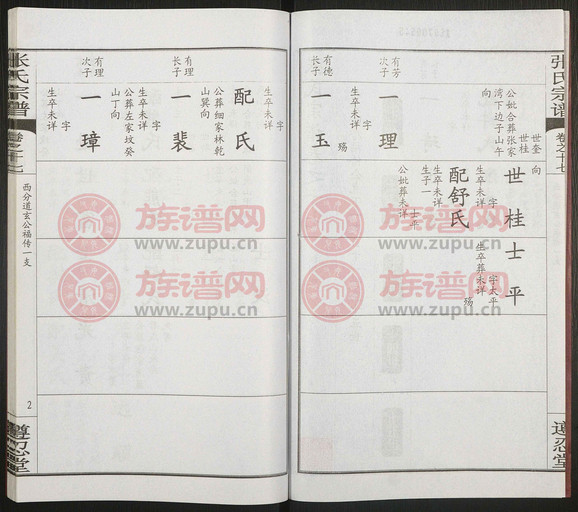 张氏宗谱
卷之十七
遵忍堂
世奎
世桂
公妣合葬张家
湾下边子山午
向
向
有芳
次子
一理
字
生卒未详
殇
有德
长子
一玉
字
生卒未详
世桂
字
生卒未详
配舒氏
生卒未详
生子一
士平
公妣葬未详
士平
字太平
生卒葬未详
殇
配氏
生卒未详
有理
长子
一裴
字
生卒未详
公葬细家林乾
山巽向
有理
次子
一璋
字
生卒未详
公葬左家坟癸
山丁向
张氏宗谱
卷之十七
西分道玄公福传一支
2
遵忍堂
族谱网
www.zupu.cn
族谱网
www.zupu.cn
族谱网
www.zupu.cn
族谱网
www.zupu.cn